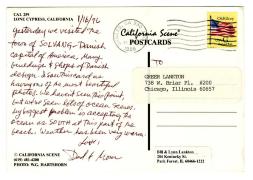 CAL 291
LONE CYPRESS, CALIFORNIA
1/16/96
California Scene
POSTCARDS
Yesterday we visited the
town of SOLVANG - Danish
Capital of America. Many
buildings & shops of Danish
design. & SanPostcard as
have one of the most beautiful
photos. We haven't seen this point,
but our view lots of ocean scenes.
biggest problem is accepting the
ocean as SOUTH at this part of the
beach. Weather has been very warm.
Love,
Dad & Mom
TO:
GREER LANKTON
738 W. Briar Pl. #200
Chicago, Illinois 60657
© CALIFORNIA SCENE
(619) 481-6200
PHOTO: W.G. HARTSHORN
Bill & Lynn Lankton
204 Kentucky St.
Park Forest, IL 60466-1222